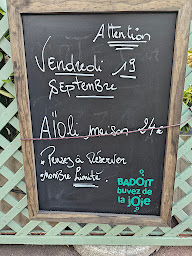 Attention
Vendredi 19
Septembre
Aïoli maison 24€
• Pensez à Réserver
• Nombre Limité.
BADOIT
buvez de
la joie